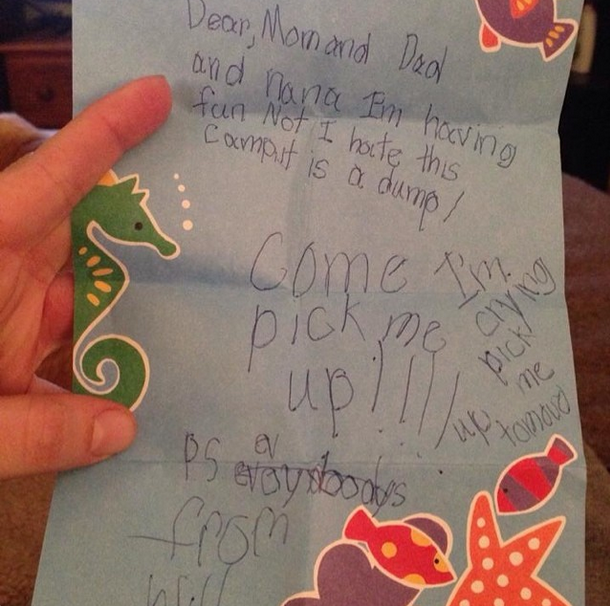 Dear, Mom and Dad
and nana I'm having
fun Not I hate this
Camp it is a dump!
Come
pick me
up!!!!
I'm
crying
pick
me
up tomorrow
PS ev
everybodys
from
Will